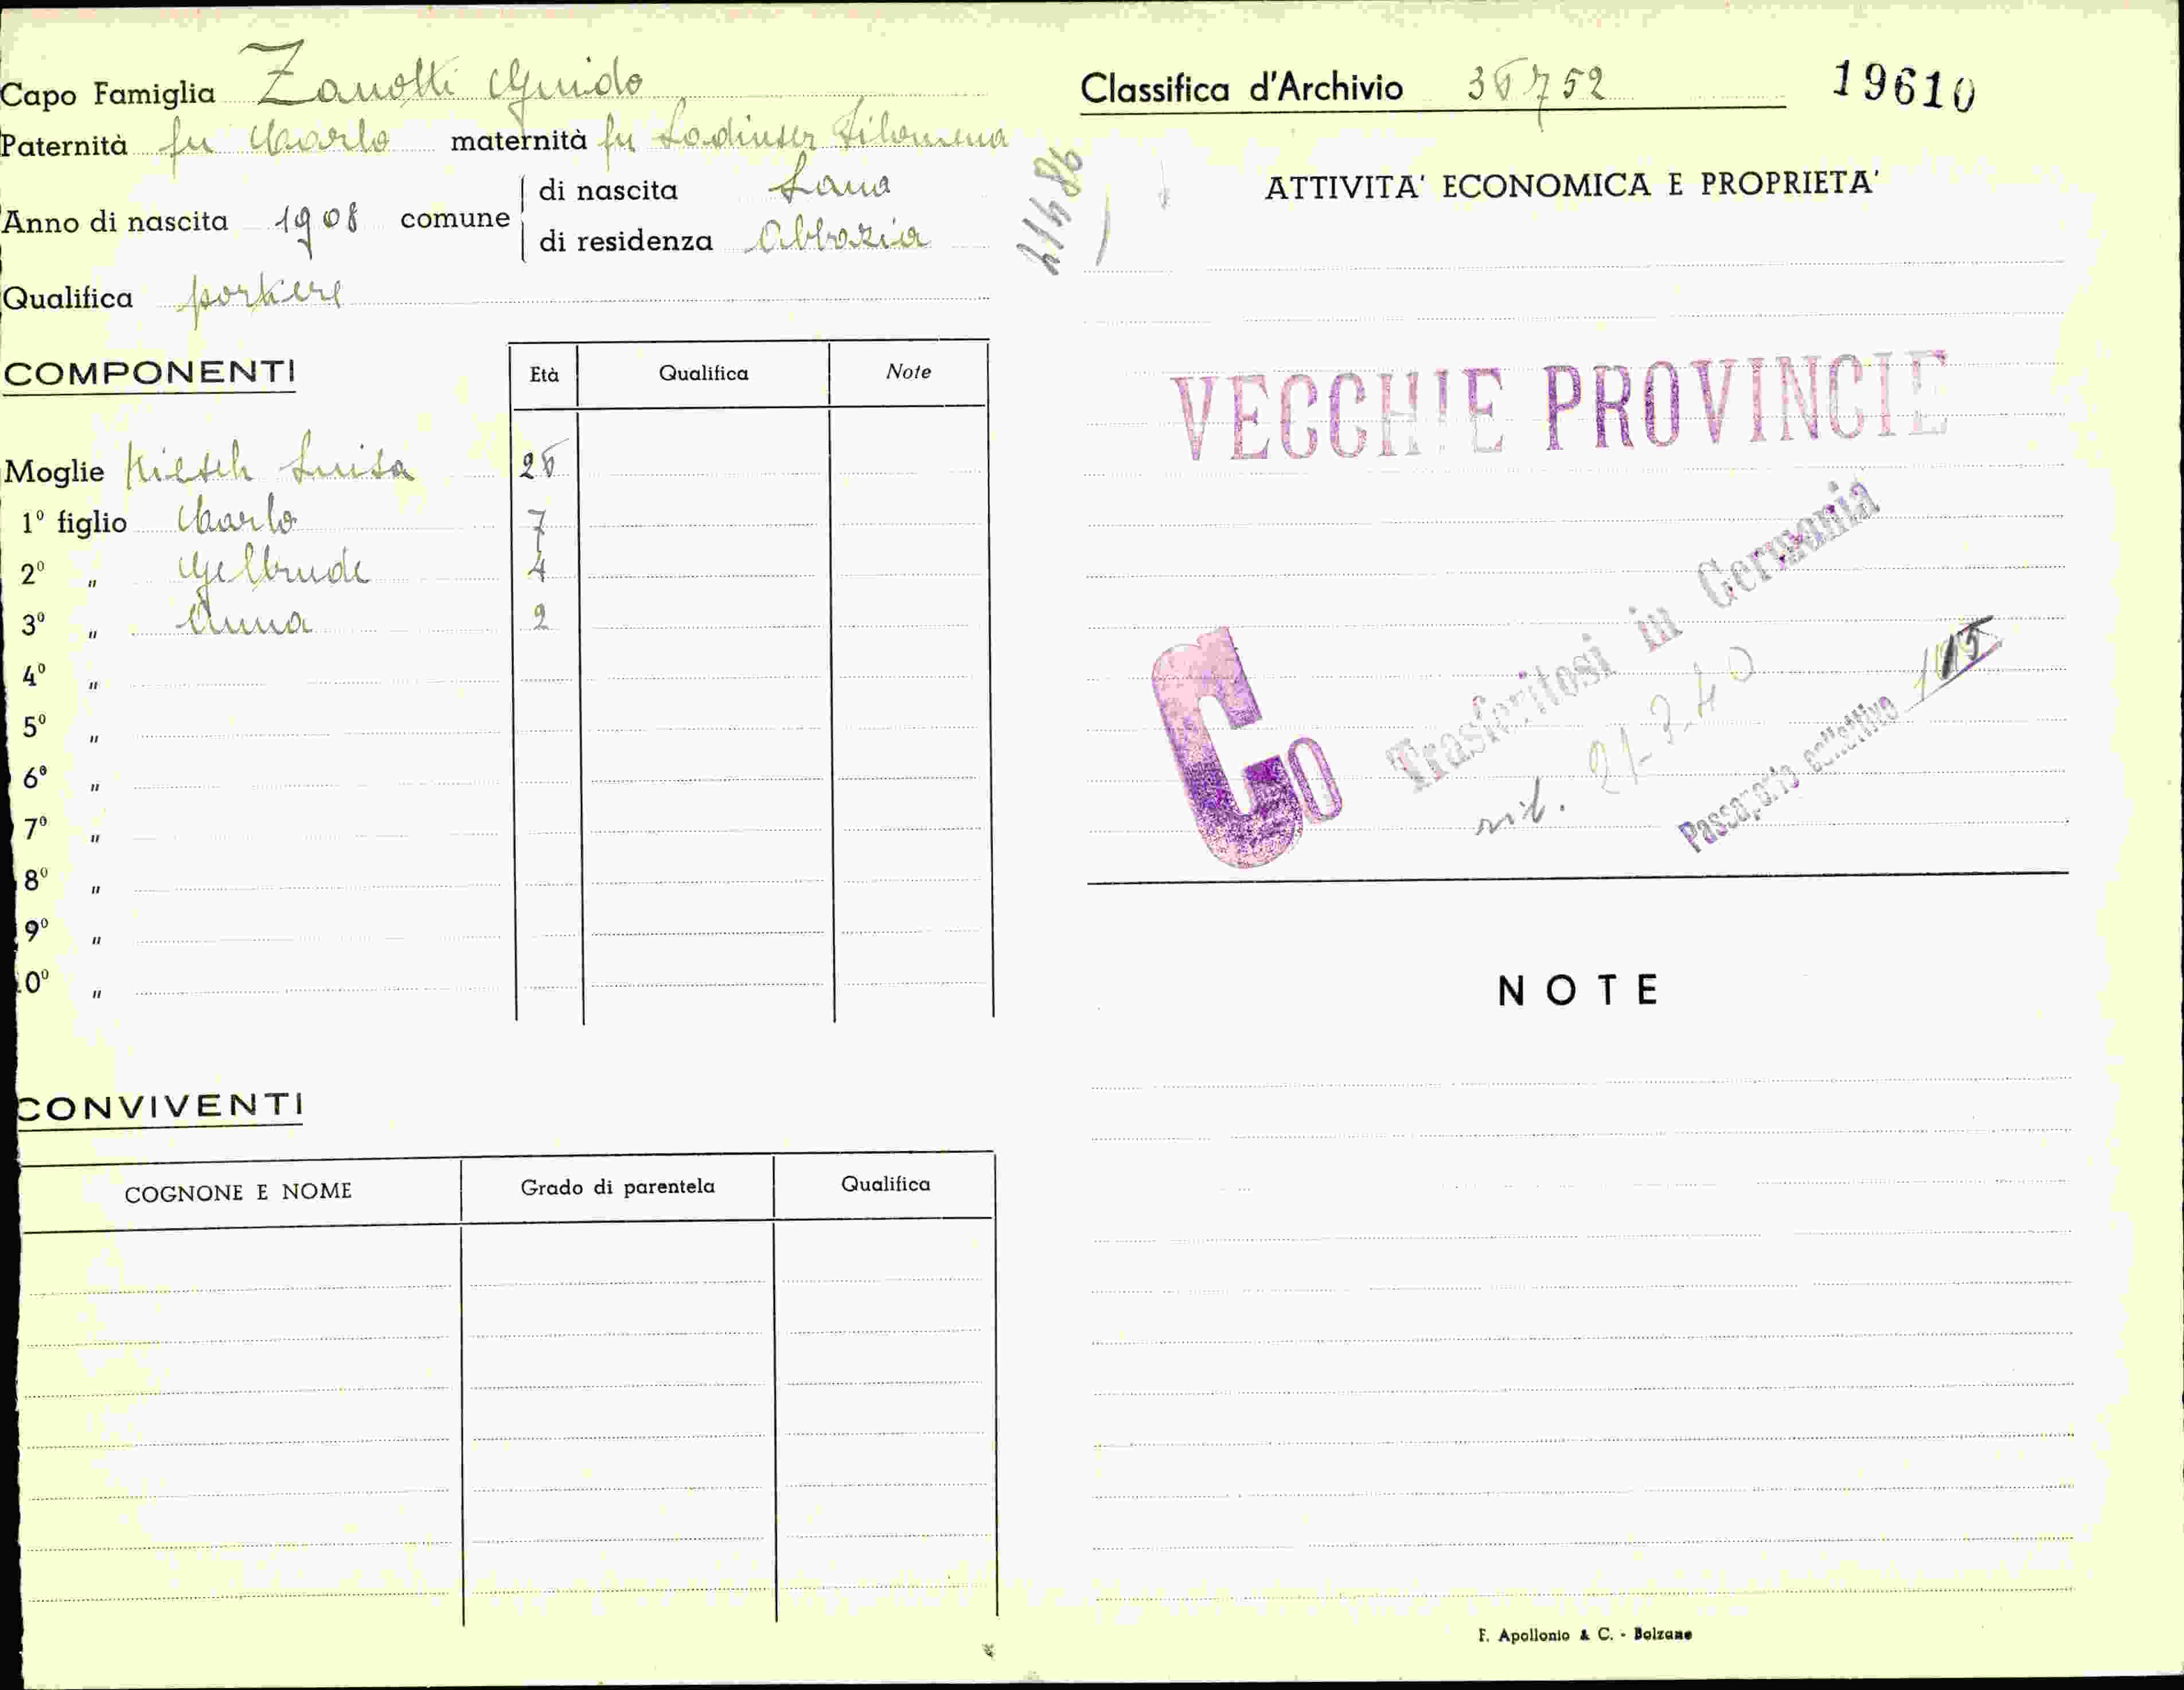 Capo Famiglia Zanotti Guido
Paternità fu Carlo maternità fu Ladiuser Filomena
Anno di nascita 1908 comune di nascita Lana
di residenza Abbazia
Qualifica portiere
COMPONENTI
Età Qualifica Note
Moglie Luisa
1º figlio Carlo 7
2º „ Geltrude 4
3º „ Anna 2
4º „
5º „
6º „
7º „
8º „
9º „
0º „
CONVIVENTI
COGNONE E NOME Grado di parentela Qualifica
Classifica d'Archivio 19610
ATTIVITA' ECONOMICA E PROPRIETA'
VECCHIE PROVINCIE
Go
Trasferitosi in Germania
21-3-40
Passaporto collettivo
NOTE
F. Apollonio & C. - Bolzano